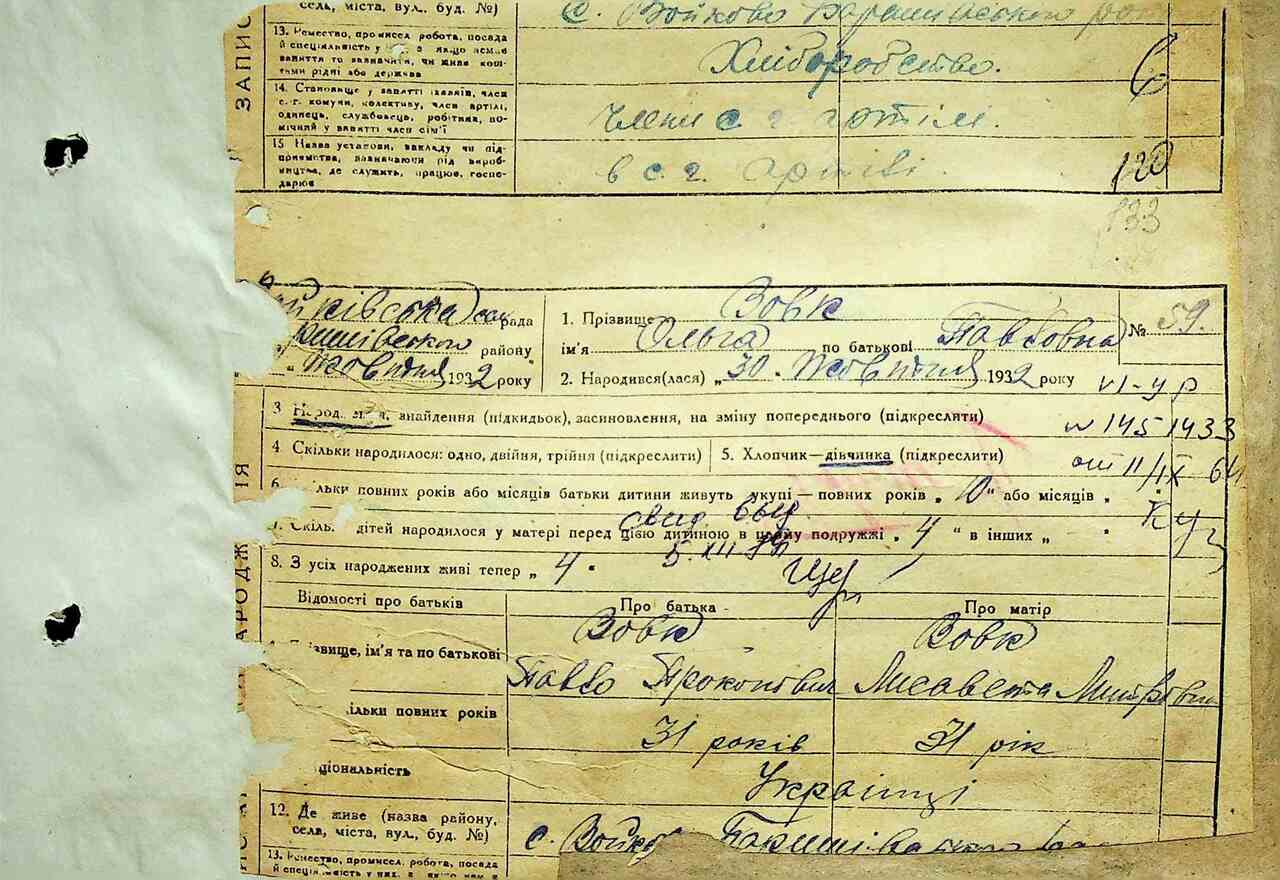 села, міста, вул., буд. №)
с. Войково
ЗАПИС
13. Ремество, промисел, робота, посада
й спеціяльність у
якщо немає
заняття то зазначити, чи живе кош-
тами рідні або держава
Хліборобство.
6
14. Становище у занятті
член
с.-г. комуни, колективу, член артілі,
одинець, службовець, робітник, по-
мічний у занятті член сім'ї
члени с г артілі.
15 Назва установи, закладу чи під-
приємства, зазначаючи рід вироб-
ництва, де служить, працює, госпо-
дарює
в с. г. артілі.
120
133
йківська рада
району
Жовтня 1932 року
1. Прізвище Вовк
ім'я Ольга по батькові Павловна
№ 59.
2. Народився(лася) „30" Жовтня 1932 року
3 Народ знайдення (підкидьок), засиновлення, на зміну попереднього (підкреслити)
№ 145 1433
4. Скільки народилося: одно, двійня, трійня (підкреслити)
5. Хлопчик—дівчинка (підкреслити)
от 11/IX
6. ільки повних років або місяців батьки дитини живуть укупі—повних років „10" або місяців „
Скіль дітей народилося у матері перед цією дитиною в цьому подружжі „4" в інших „
8. З усіх народжених живі тепер „4"
Відомості про батьків
Про батька
Про матір
Вовк
Вовк
ізвище, ім'я та по батькові
Павло Прокопович
Лисавета Митровна
ільки повних років
31 років
31 рік
ціональність
Українці
12. Де живе (назва району,
села, міста, вул., буд. №)
с. Войков
13. Ремество, промисел, робота, посада
й спеціяльність у